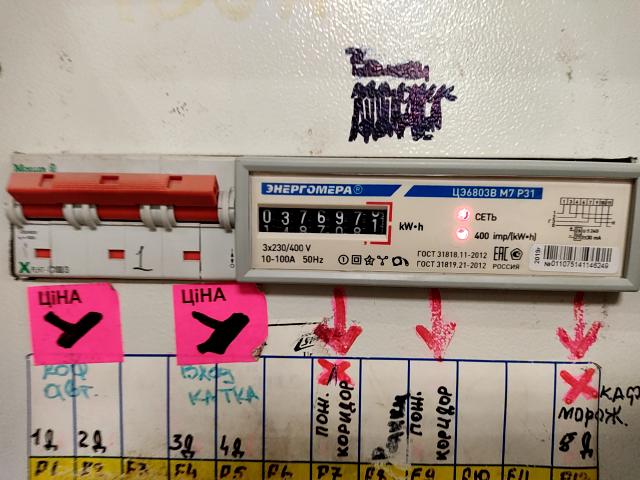 ЭНЕРГОМЕРА®
ЦЭ6803В М7 Р31
037697
kW•h
СЕТЬ
400 imp/(kW•h)
3x230/400 V
10-100A 50Hz
ГОСТ 31818.11-2012
ГОСТ 31819.21-2012
РОССИЯ
2019г
№011075141146249
1
ЦіНА
ЦіНА
КОФ
АВТ.
ВХОД
КАТКА
ПОЖ.
КОРИДОР
ПОЖ.
КОРИДОР
МОРОЖ.
1Д
2Д
3Д
4Д
8Д
F1
F2
F3
F4
F5
F6
F7
F8
F9
F10
F11
F12